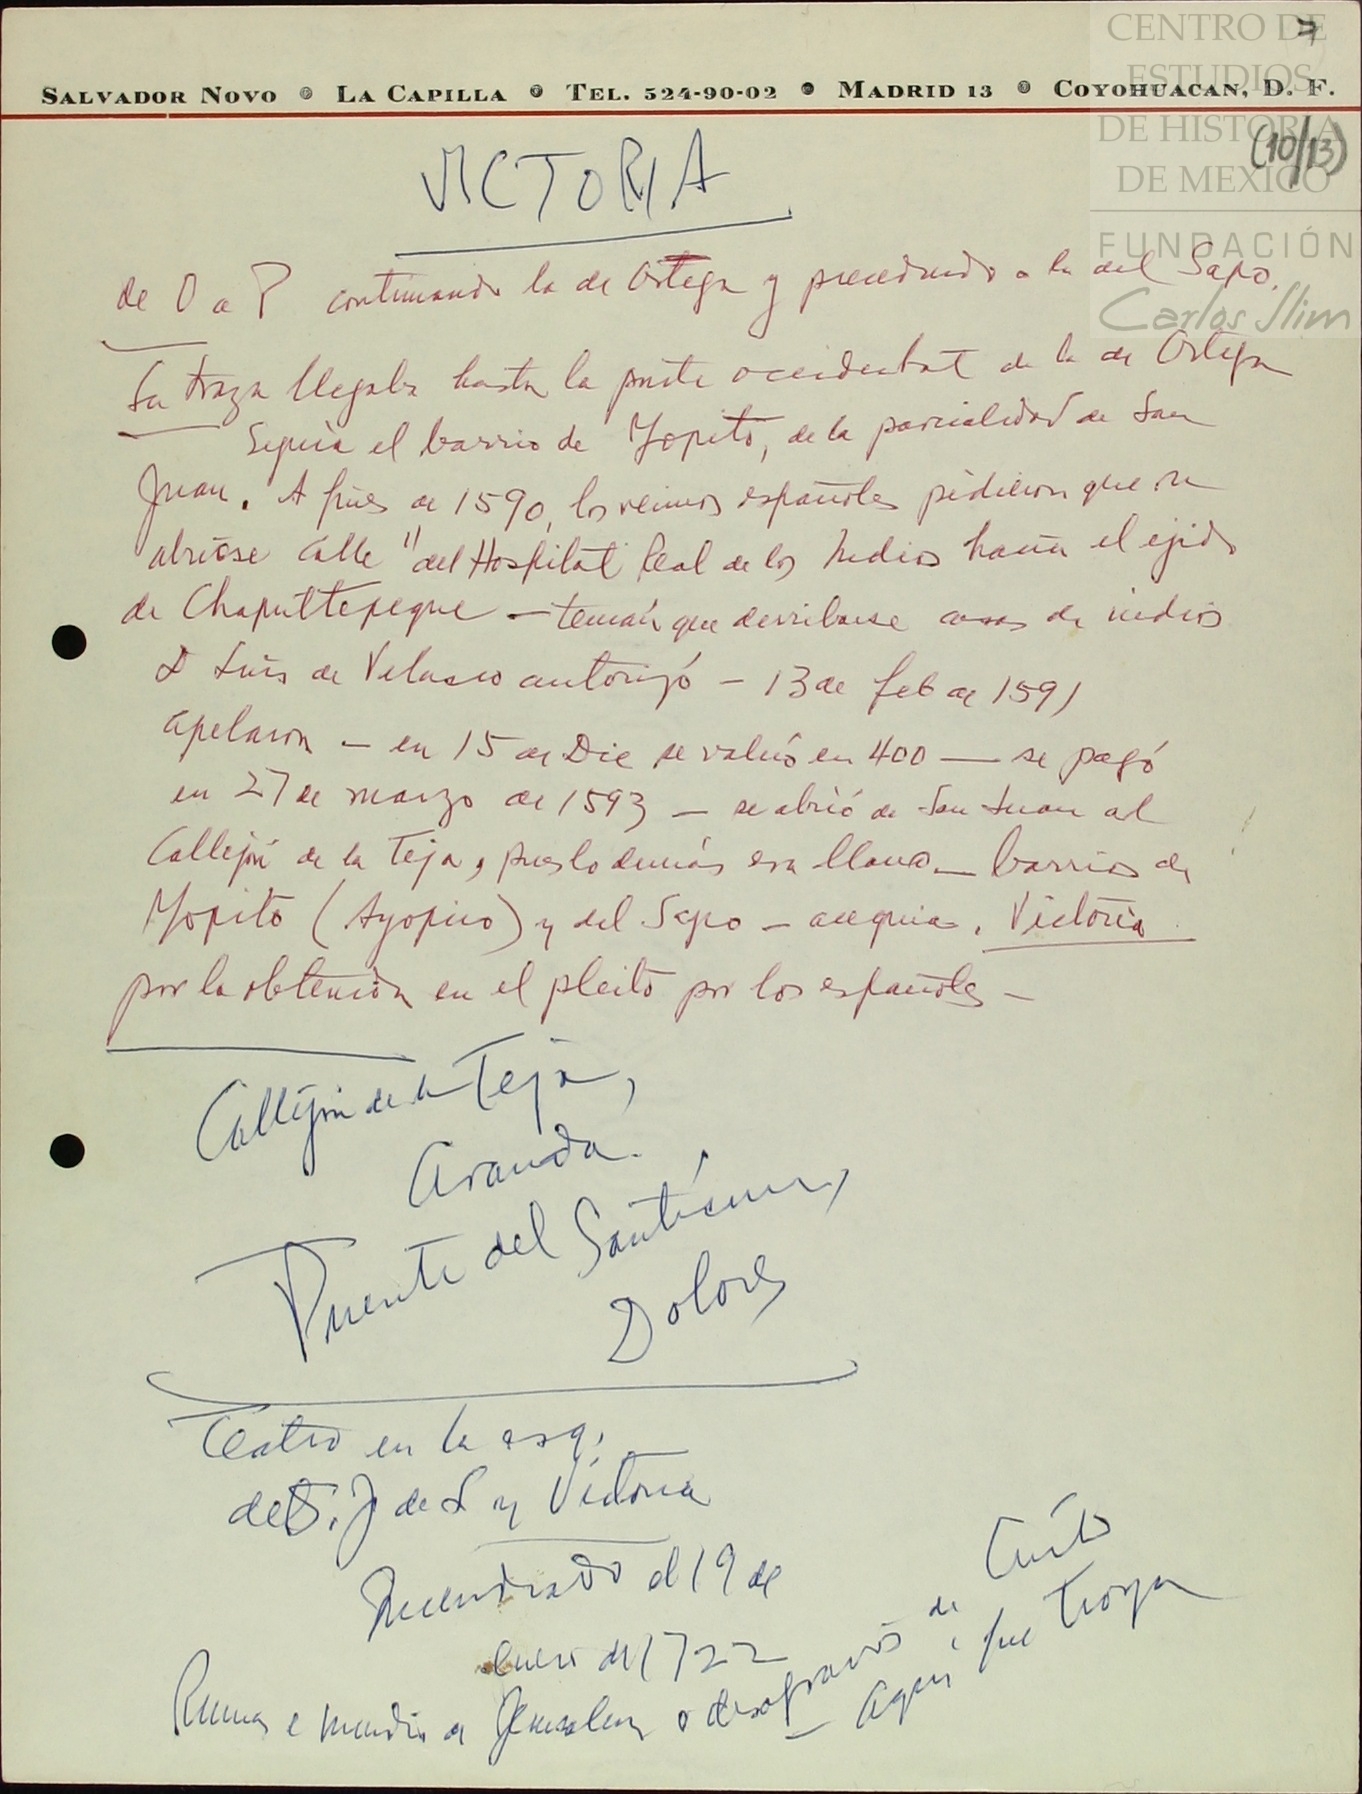 7
SALVADOR NOVO • LA CAPILLA • TEL. 524-90-02 • MADRID 13 • COYOHUACAN, D. F.
CENTRO DE
ESTUDIOS
DE HISTORIA
DE MEXICO
FUNDACIÓN
Carlos Slim
(10/13)
VICTORIA
de O a P continuando la de Ortega y precediendo a la del Sapo.
La traza llegaba hasta la parte occidental de la de Ortega
Seguía el barrio de Yopito, de la parcialidad de San
Juan. A fines de 1590, los vecinos españoles pidieron que se
abriese calle "del Hospital Real de los Indios hacia el ejido
de Chapultepeque — tenían que derribarse casas de indios
D Luis de Velasco autorizó — 13 de feb de 1591
apelaron — en 15 de Dic se valuó en 400 — se pagó
en 27 de marzo de 1593 — se abrió de San Juan al
Callejón de la Teja, pues lo demás era llano — barrios de
Yopito (Ayopico) y del Sapo — acequias. Victoria
por la obtenida en el pleito por los españoles —
Callejón de la Teja,
Aranda.
Puente del Santísimo,
Dolores
Teatro en la esq.
de S. J de L y Victoria
Incendiado el 19 de
enero de 1722
Ruina e incendio de Jerusalem o desagravios de Cristo
— Aquí fue Troya